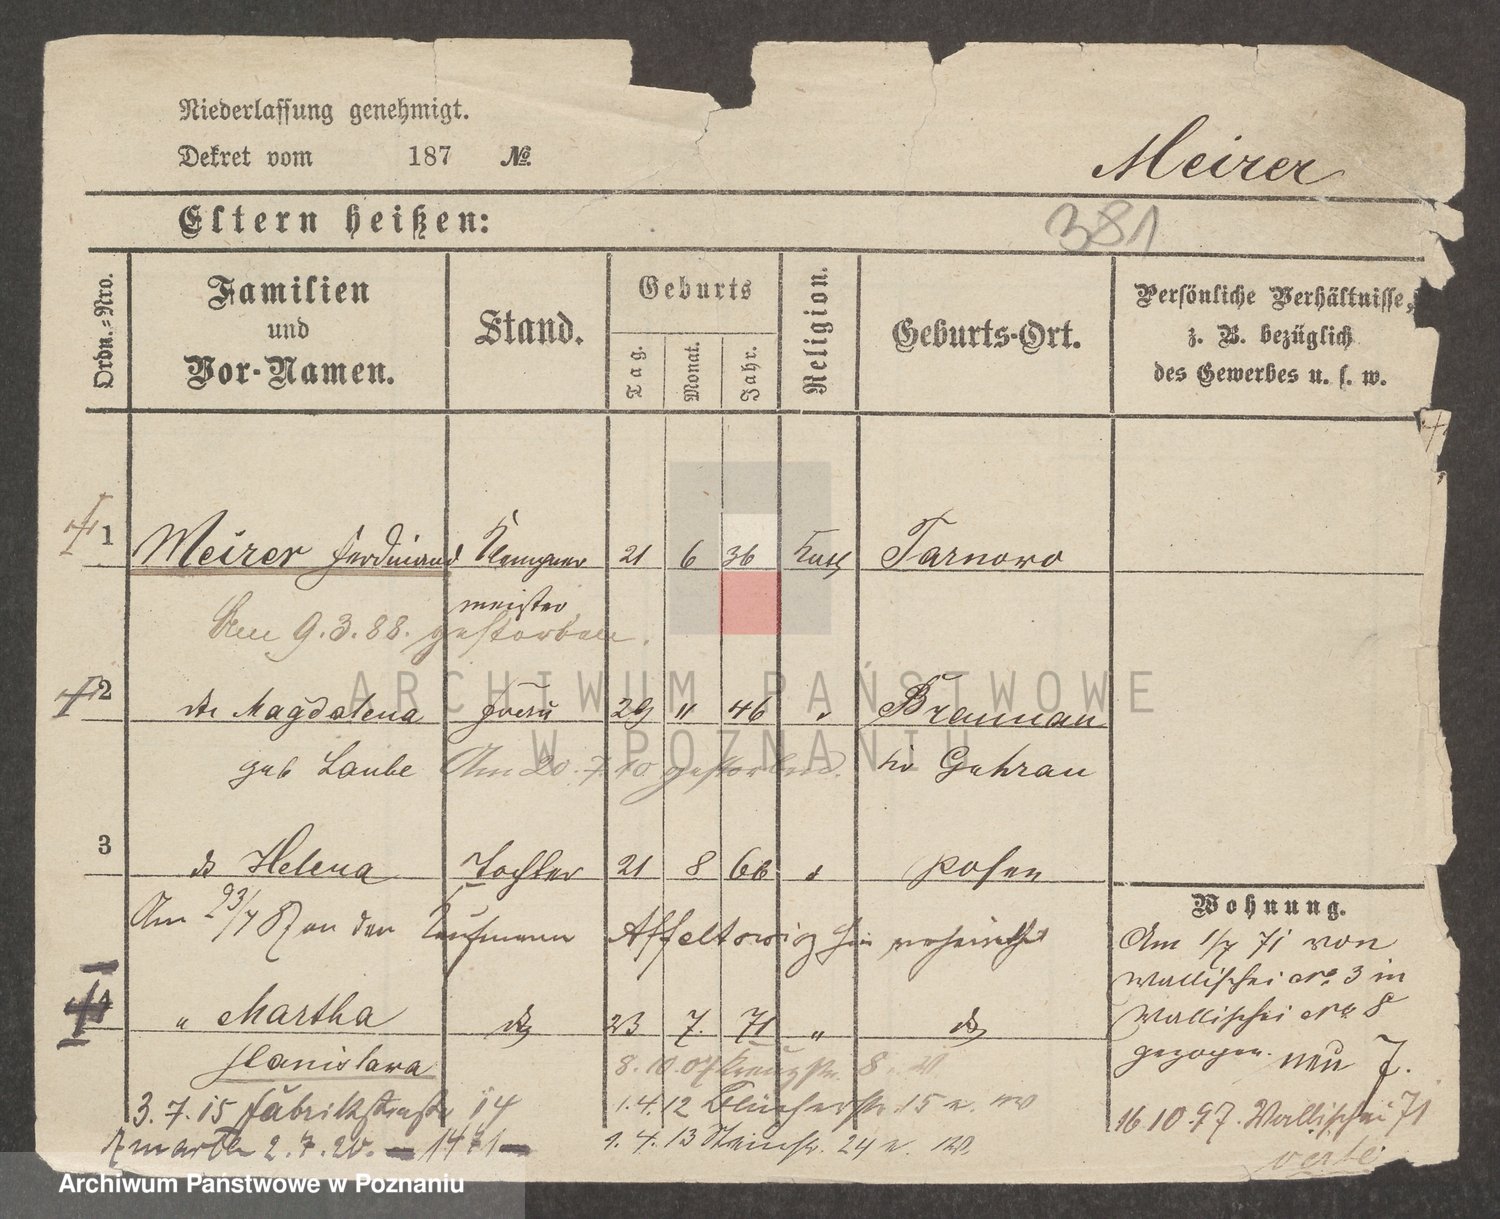 Niederlassung genehmigt.
Dekret vom 187 №
Meirer
Eltern heißen:
381
Ordn.-Nro.
Familien und Vor-Namen.
Stand.
Geburts
Tag.
Monat.
Jahr.
Religion.
Geburts-Ort.
Persönliche Verhältnisse, z. B. bezüglich des Gewerbes u. s. w.
1 Meirer Ferdinand Klempner 21 6 36 Kath Tarnowo
meister
Am 9.3.88. gestorben.
2 Magdalena Frau 29 " 46 Braunau
geb Laube Am 20. 7 10 gestorben. Guhrau
3 Helena Tochter 21 8 66 Posen
Am 23/7 87 an den Kaufmann verheirathet
Wohnung.
Am 1/7 71 von
Wallischei No 3 in
Wallischei No 8
gezogen. neu 7.
16.10.97. Wallischei 71
verte
4 " Martha 23 7. 71 "
Stanislava
8.10.07 Kreuzstr. 8
3.7.15 Fabrikstrasse 14
1.4.12 Blücherstr. 15
2.7.20.
1.4.13 24
ARCHIWUM PAŃSTWOWE
W POZNANIU
Archiwum Państwowe w Poznaniu